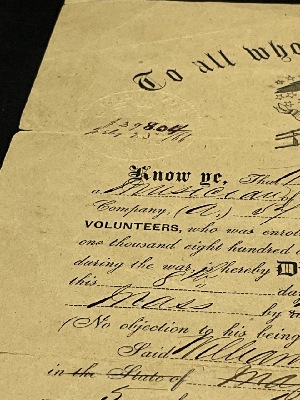 To all who
804
Know ye, That
a Musician
Company, (A.)
VOLUNTEERS, who was enrol
one thousand eight hundred
during the war, is hereby D
this 8th da
Mass by
(No objection to his being
Said William
in the State of Ma
5